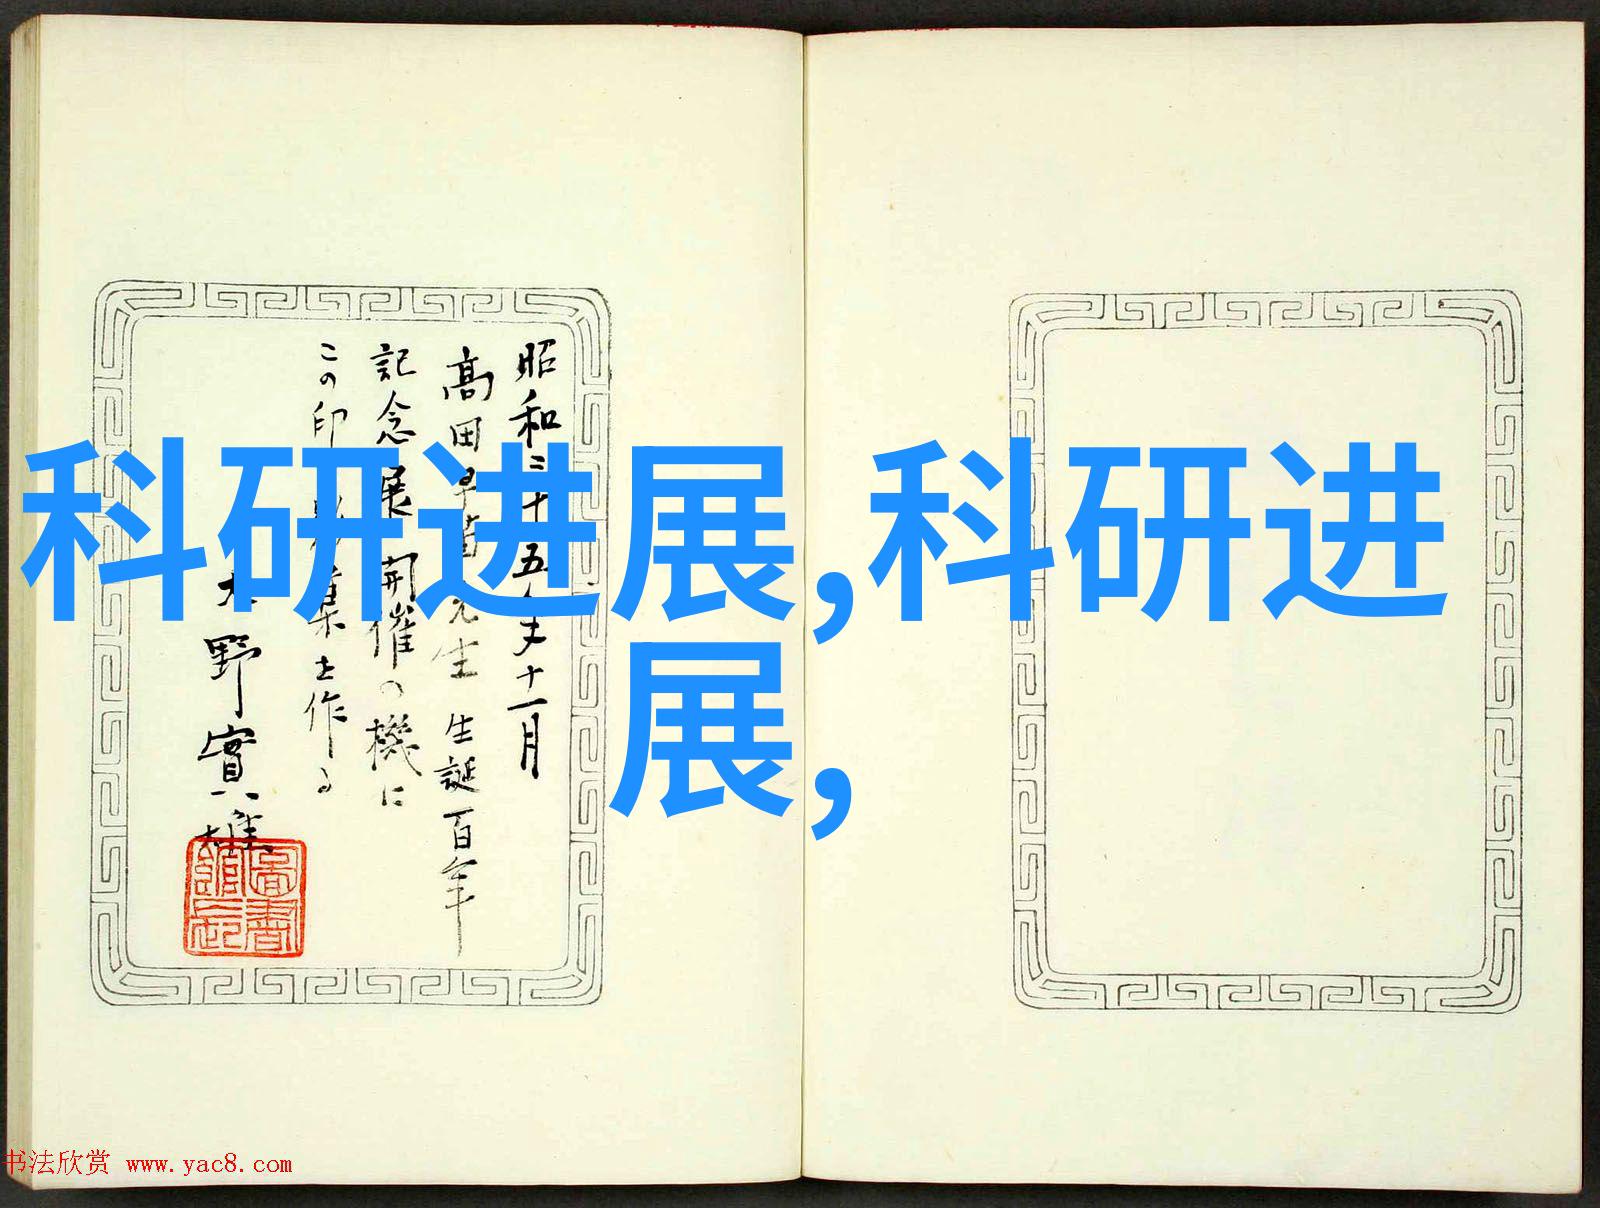 科研进展,科研进
展,
昭和三十五年十一月
高田早苗先生 生誕百年
記念展開催の機に
この印影集を作る
大野實雄
圖書館長
书法欣赏 www.yac8.com